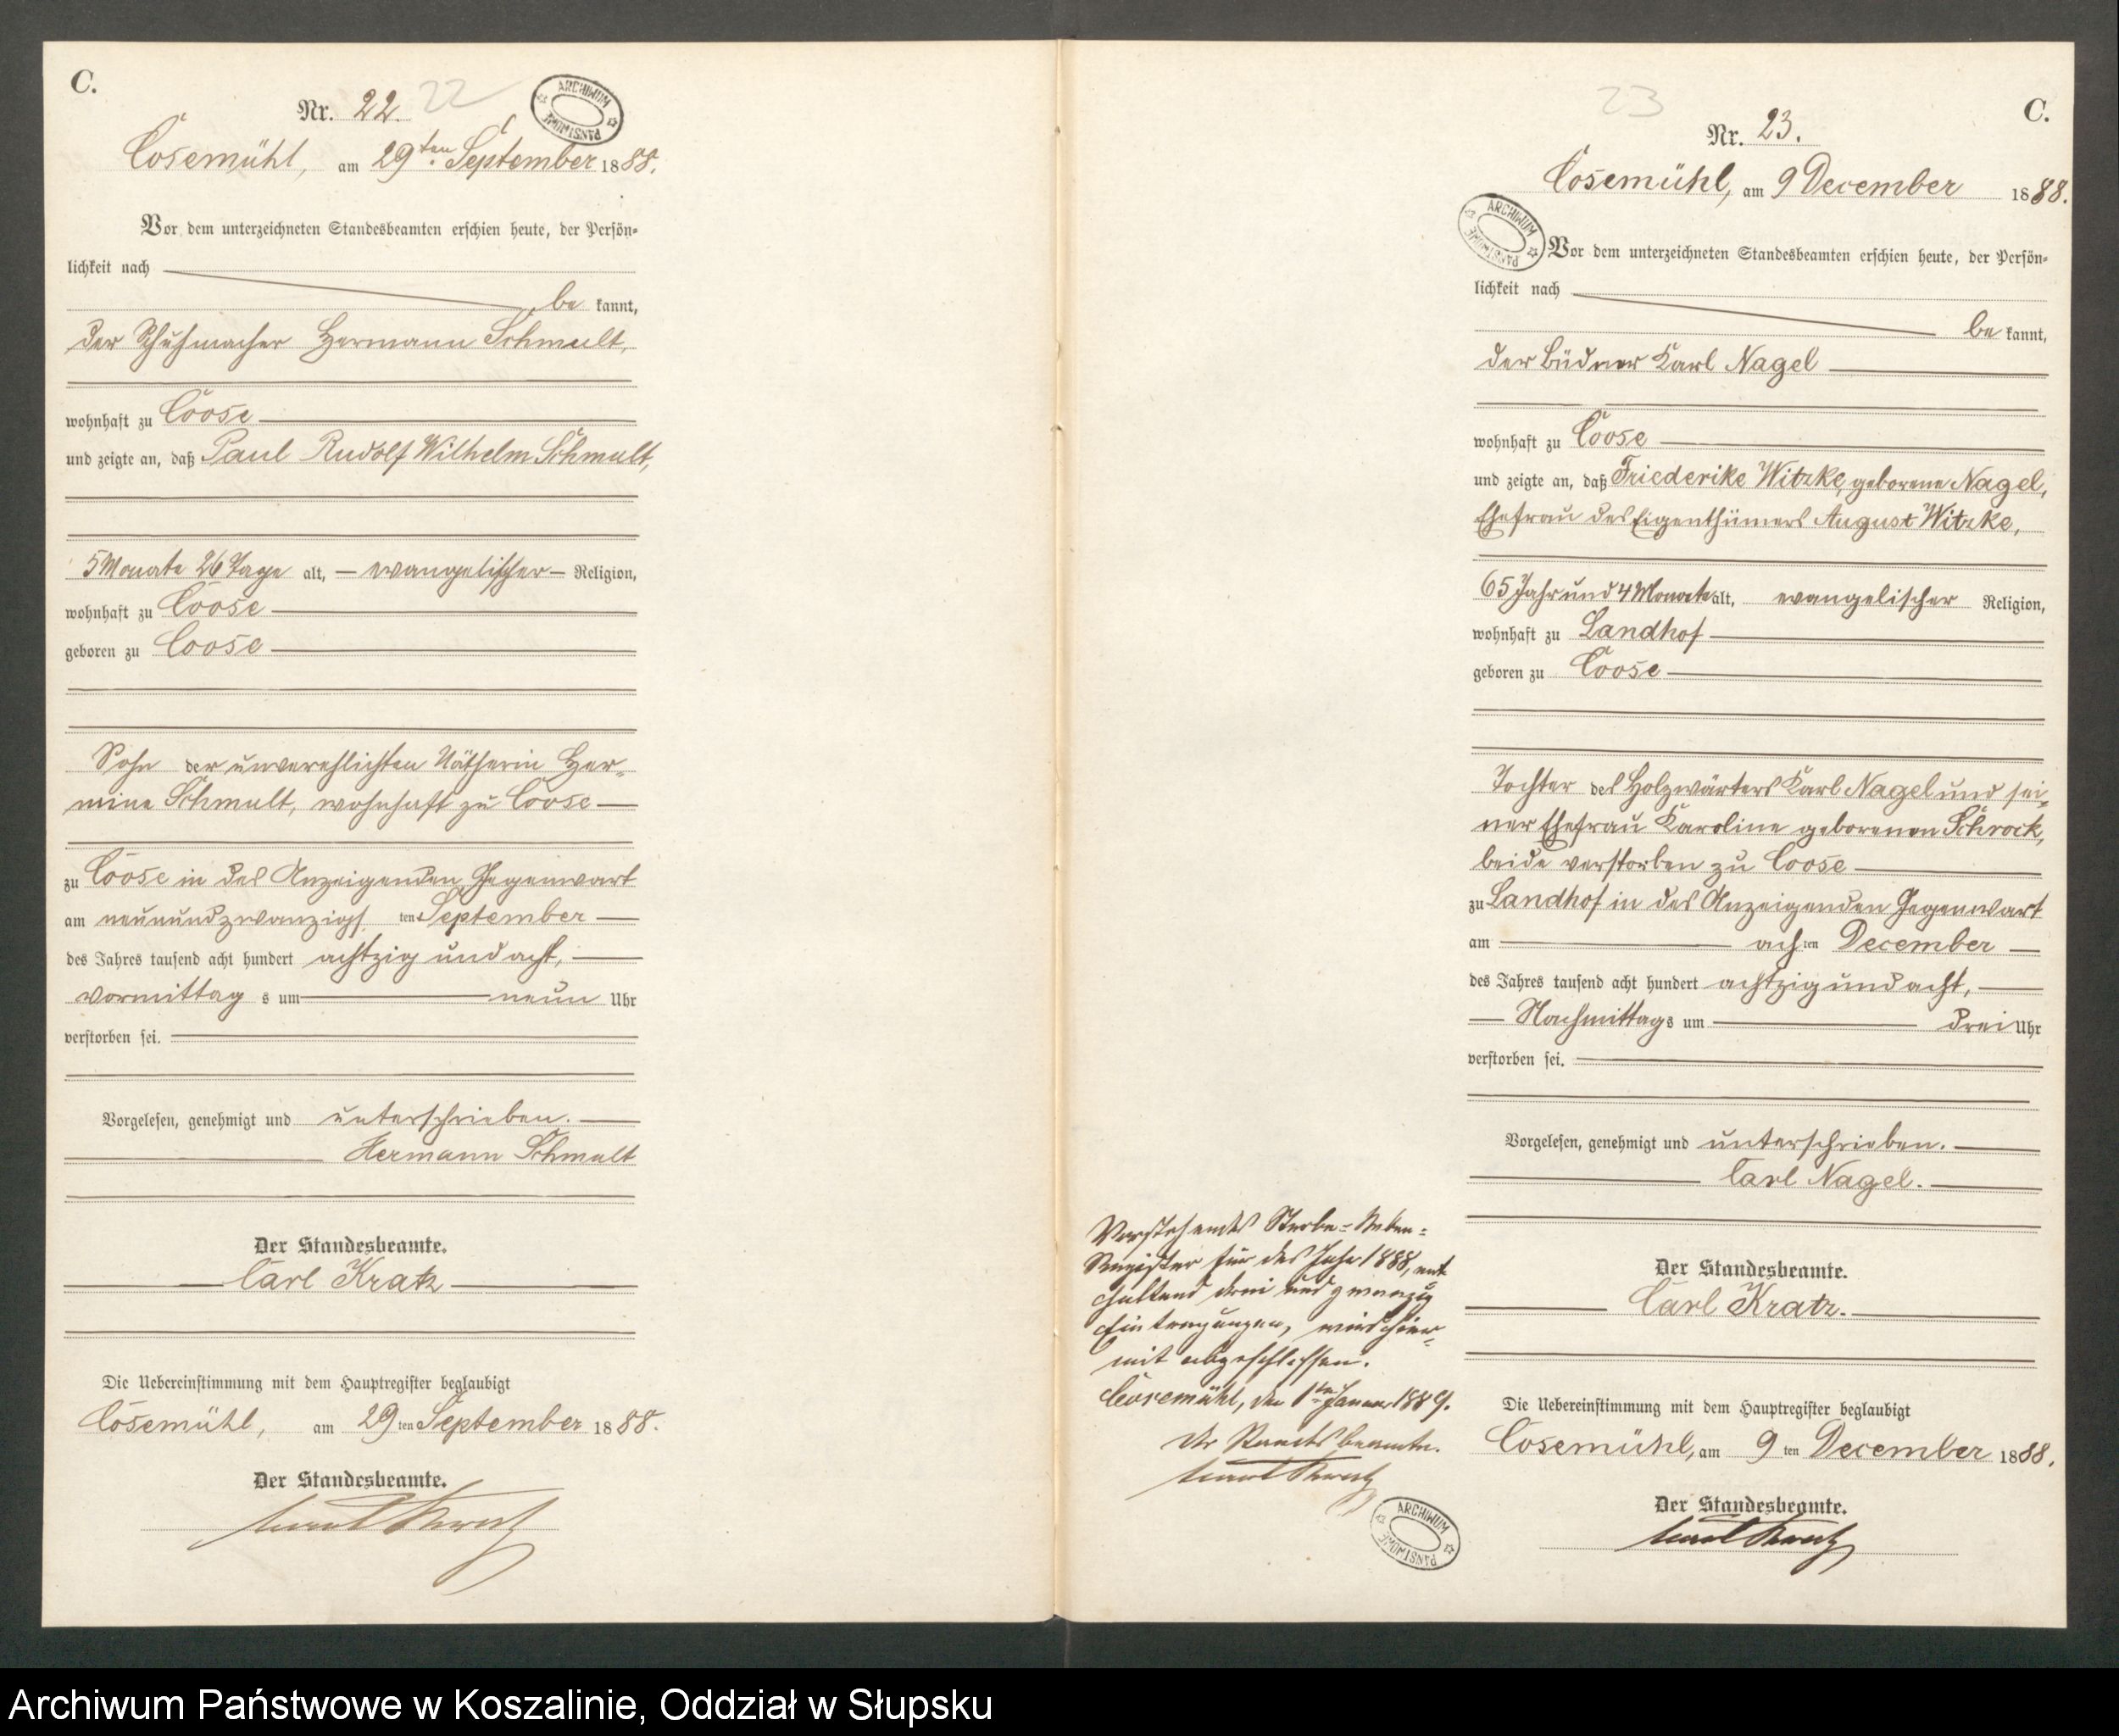 C.
Nr. 22. 22
ARCHIWUM PAŃSTWOWE
Cosemühl, am 29ten September 1888.
Vor dem unterzeichneten Standesbeamten erschien heute, der Persön-
lichkeit nach
be kannt,
der Schuhmacher Hermann Schmult,
wohnhaft zu Coose
und zeigte an, daß Paul Rudolf Wilhelm Schmult,
5 Monate 26 Tage alt, evangelischer Religion,
wohnhaft zu Coose
geboren zu Coose
Sohn der unverehlichten Nätherin Her-
mine Schmult, wohnhaft zu Coose
zu Coose in des Anzeigenden Gegenwart
am neunundzwanzigs ten September
des Jahres tausend acht hundert achtzig und acht,
vormittag s um neun Uhr
verstorben sei.
Vorgelesen, genehmigt und unterschrieben.
Hermann Schmult
Der Standesbeamte.
Carl Kratz
Die Uebereinstimmung mit dem Hauptregister beglaubigt
Cosemühl, am 29 ten September 1888.
Der Standesbeamte.
Carl Kratz
23
C.
Nr. 23.
Cosemühl, am 9 December 1888.
ARCHIWUM PAŃSTWOWE
Vor dem unterzeichneten Standesbeamten erschien heute, der Persön-
lichkeit nach
be kannt,
der Büdner Karl Nagel
wohnhaft zu Coose
und zeigte an, daß Friederike Witzke, geborene Nagel,
Ehefrau des Eigenthümers August Witzke,
65 Jahr und 4 Monate alt, evangelischer Religion,
wohnhaft zu Landhof
geboren zu Coose
Tochter des Holzwärters Karl Nagel und sei-
ner Ehefrau Karoline geborenen Schrock,
beide verstorben zu Coose
zu Landhof in des Anzeigenden Gegenwart
am ach ten December
des Jahres tausend acht hundert achtzig und acht,
Nachmittag s um drei Uhr
verstorben sei.
Vorgelesen, genehmigt und unterschrieben.
Carl Nagel.
Der Standesbeamte.
Carl Kratz.
Die Uebereinstimmung mit dem Hauptregister beglaubigt
Cosemühl, am 9 ten December 1888.
Der Standesbeamte.
Carl Kratz
Vorstehendes Sterbe-Neben-
Register für das Jahr 1888, ent
haltend drei und zwanzig
Eintragungen, wird hier-
mit abgeschlossen.
Cosemühl, den 1ten Januar 1889.
Der Standesbeamte.
Carl Kratz
ARCHIWUM PAŃSTWOWE
Archiwum Państwowe w Koszalinie, Oddział w Słupsku